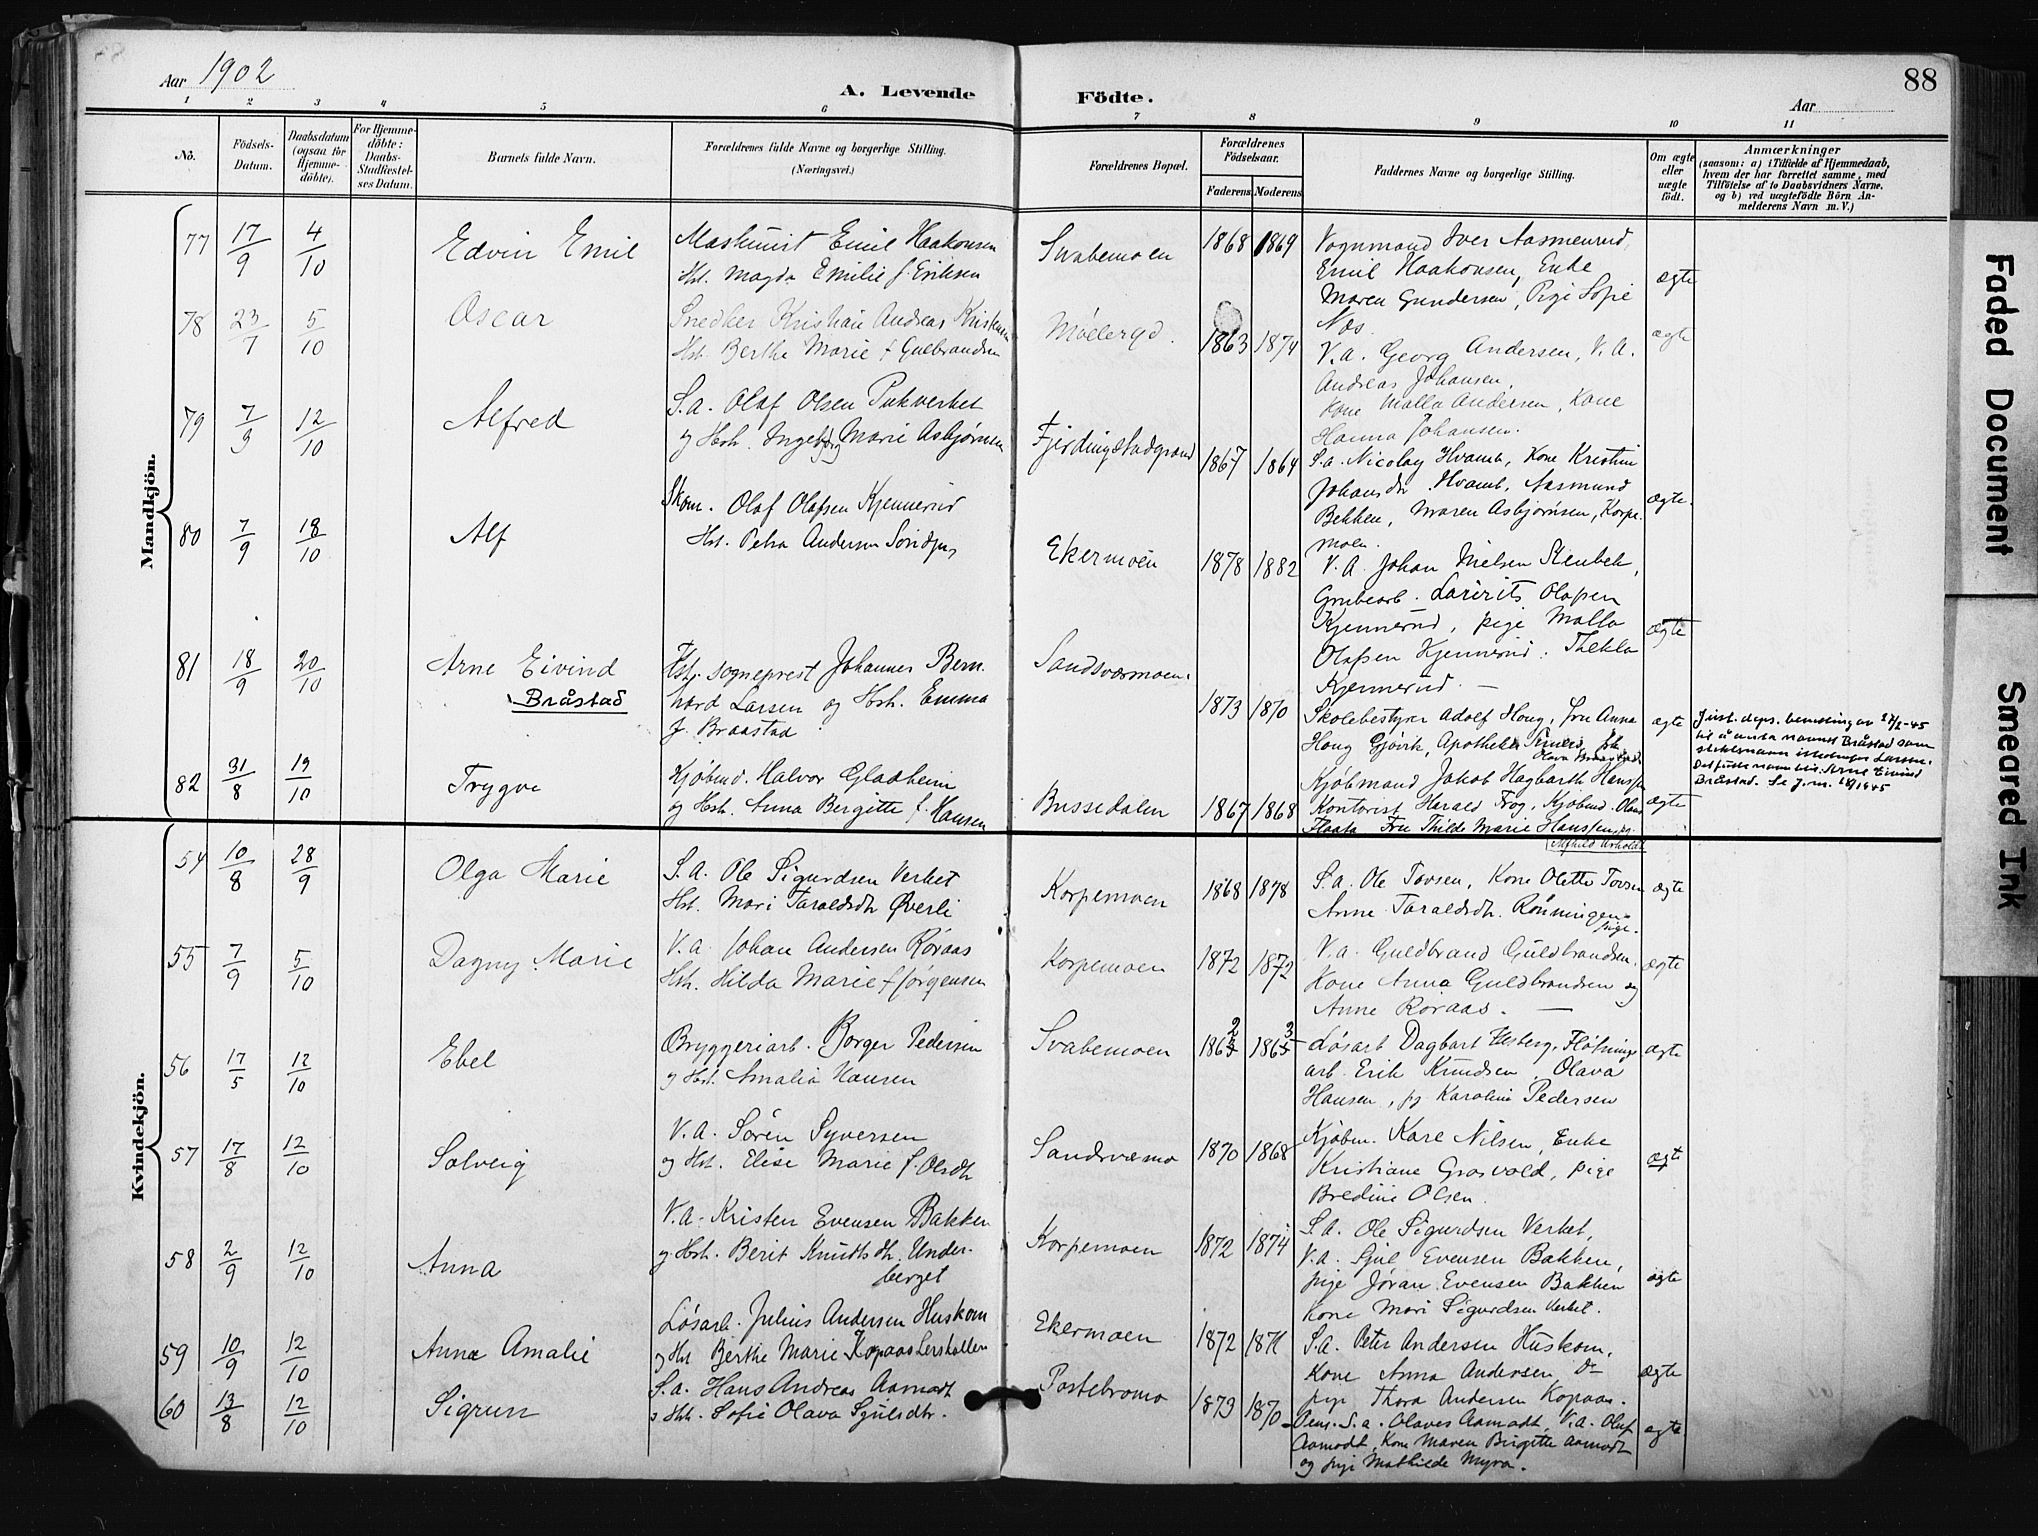 Aar 1902
A. Levende Födte.
88
Aar
1 2 3 4 5 6 7 8 9 10 11
No.
Födsels-
Datum.
Daabsdatum
(ogsaa for
Hjemme-
döbte).
For Hjemme-
döbte:
Daabs-
Stadfæstel-
ses Datum.
Barnets fulde Navn.
Forældrenes fulde Navne og borgerlige Stilling.
(Næringsvei.)
Forældrenes Bopæl.
Forældrenes
Födselsaar.
Faderens
Moderens
Faddernes Navne og borgerlige Stilling.
Om ægte
eller
uægte
födt.
Anmærkninger
(saasom: a) i Tilfælde af Hjemmedaab,
hvem der har forrettet samme, med
Tilföielse af to Daabsvidners Navne,
og b) ved uægtefödte Börn An-
melderens Navn m. V.)
Mandkjön.
77 17/9 4/10 Edvin Emil
Maskinist Emil Haakonsen
Hst. Magda Emilie f. Eriksen
Svabemoen 1868 1869
Vognmand Iver Aasmenrud,
Emil Haakonsen, Enke
Maren Gundersen, Pige Sofie
Næs.
ægte
78 23/7 5/10 Oscar
Snedker Kristian Andreas Kristensen
Hst. Berthe Marie f. Gulbrandsen
1863 1874
V.a. Georg Andersen, V.A.
Andreas Johansen,
Kone Malla Andersen, Kone
Hanna Johansen.
ægte
79 7/9 12/10 Alfred
S.a. Olaf Olsen Pukverket
og Hst. Ingeborg Marie Asbjørnsen
Fjerdingstadgrand 1867 1864
S.a. Nicolay Hvamb, Kone Kristine
Johansdr Hvamb, Aasmund
Bekken, Maren Asbjørnsen, Korpe-
moen.
ægte.
80 7/9 18/10 Alf
Skom. Olaf Olafsen Kjennerud
Hst. Petra Andersen
Ekermoen 1878 1882
V.A. Johan Nielsen Stenbek,
Grubearb. Laurits Olafsen
Kjennerud, pige Malla
Olafsen Kjennerud. Thekla
Kjennerud. —
ægte
81 18/9 20/10 Arne Eivind
Bråstad
Hst. sogneprest Johannes Bern-
hard Larsen og Hst. Emma
f. Braastad
Sandsværmoen. 1873 1870
Skolebestyrer Adolf Houg, fru Anna
Houg Gjøvik, Apotheker
ægte
Just. deps. bevilling av 27/2-45
til å anta navnet Bråstad som
slektsnavn istedenfor Larsen.
Det fulde navn blir: Arne Eivind
Bråstad.
82 31/8 19/10 Trygve
Kjøbmd. Halvor Gladheim
og Hst. Anna Bergitte f. Hansen
Bussedalen 1867 1868
Kjøbmand Jakob Hagbarth Hanssen
Kontorist Harald Frog, Kjøbmd. Olaus
Flaata Fru Thilde Marie Hanssen, pg.
Alfhild Arholdt
ægte
Kvindekjön.
54 10/8 28/9 Olga Marie
S.A. Ole Sigurdsen Verket
Hst. Mari Taraldsdtr Øverli
Korpemoen 1868 1878
S.a. Ole Tovsen, Kone Olette Tovsen
Anne Taraldsdtr. Rønningen
pige.
ægte
55 7/9 5/10 Dagny Marie
V.a. Johan Andersen Røraas
Hst. Hilda Marie f. Jørgensen
Korpemoen 1872 1872
V.a. Guldbrand Guldbrandsen.
Kone Anna Guldbrandsen og
Anne Roraas. —
ægte
56 17/5 12/10 Ebel
Bryggeriarb. Borger Pedersen
og Hst. Amalia Hansen
Svabemoen 1862 1863
Løsarb Dagbart Hesberg, Fløtnings
arb. Erik Knudsen, Olava
Hansen, pg Karoline Pedersen
ægte
57 17/8 12/10 Solveig
V.A. Søren Syversen
og Hst. Elise Marie f. Olsdtr
Sandsværmo 1870 1868
Kjøbm. Karl Nilsen, Enke
Kristiane Grosvold, pige
Bredine Olsen.
ægt
58 2/9 12/10 Anna
V.a. Kristen Evensen Bakken
og Hst. Berit Knudtsdtr. Under-
berget
Korpemoen 1872 1874
S.a. Ole Sigurdsen Verket,
V.a. Gjul Evensen Bakken,
pige Jøran Evensen Bakken
Kone Mari Sigurdsen Verket.
ægte
59 10/9 12/10 Anna Amalie
Løsarb. Julius Andersen Huskom
og Hst Berthe Marie Kopaas
Ekermoen 1872 1871
S.a. Peter Andersen Huskom,
Kone Anna Andersen Do
pige Thora Andersen Kopaas.
ægte
60 13/8 12/10 Sigrun
S.a. Hans Andreas Aamodt
og Hst. Sofie Olava Gjulsdtr.
Postebromo 1873 1870
S.a. Olaves Aamodt, V.a. Oluf
Aamodt, Kone Maren Birgitte Aamodt
og pige Mathilde Myra.
ægte
Faded Document
Smeared Ink